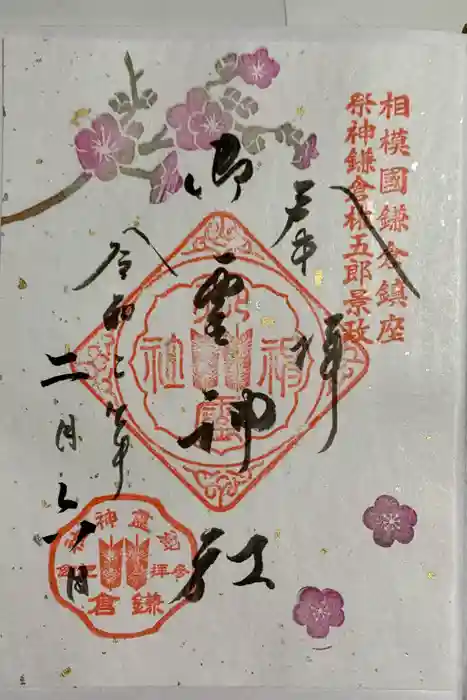 相模國鎌倉鎮座
祭神鎌倉権五郎景政
奉拝
御霊神社
令和二年
二月六日
鎌倉